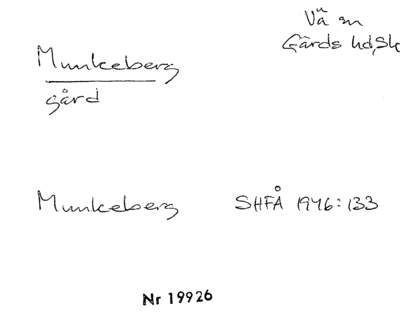 Vä sn
Gärds hd, Sk
Munkeberg
gård
Munkeberg SHFÅ 1946:133
Nr 19926